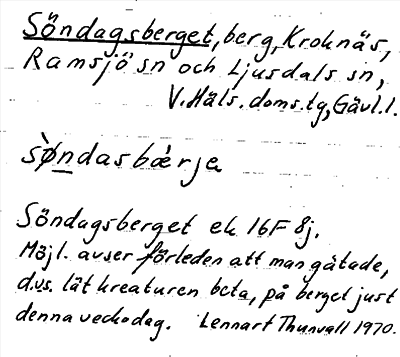 Söndagsberget, berg, Kroknäs,
Ramsjö sn och Ljusdals sn,
V. Häls. doms. tg, Gävl. l.
sø̀ndasbæ̀rja
Söndagsberget ek 16F 8j.
Möjl. avser förleden att man gätade,
d.v.s. lät kreaturen beta, på berget just
denna veckodag. Lennart Thunvall 1970.